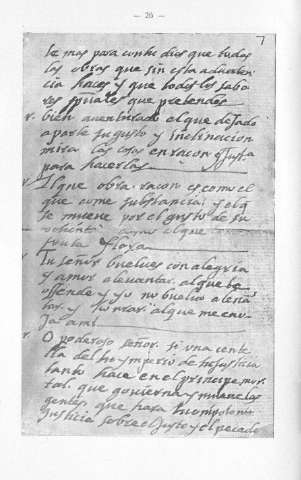 — 26 —
7
te mas para con tu dios que todas
las obras que sin esta aduerten
cia haces y que todos los sabo
res spūales que pretendes
v. bien auenturado el que dejado
aparte su gusto y inclinacion
mira las cosas en racon y justi
para hacerlas
v. El que obra racon es como el
que come substancia y el q
se mueve por el gusto de su
voluntad como el que come
fruta floxa
v. Tu señor buelues con alegria
y amor a leuantar al que te
offende y yo no buelvo a leuā
tar y honrar al que me eno
ja a mi
v. O poderoso señor si una cente
lla del imperio de tu justicia
tanto hace en el principe mor
tal que gouierna y mueue las
gentes que hara tu omnipotente
justicia sobre el justo y el pecado